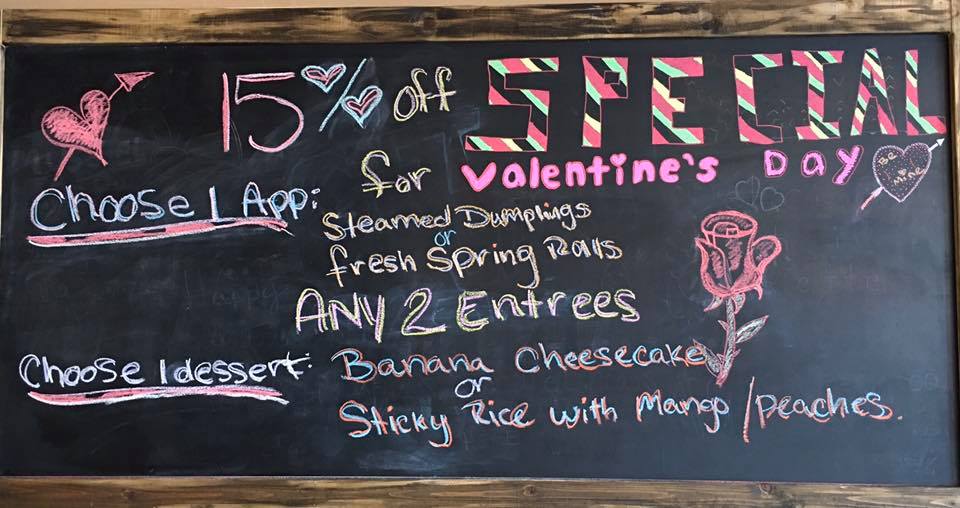 15% off SPECIAL
for Valentine's DAY
Be
mine
Choose 1 App:
Steamed Dumplings
or
fresh Spring Rolls
ANY 2 Entrees
Choose 1 dessert:
Banana Cheesecake
or
Sticky Rice with Mango / peaches.